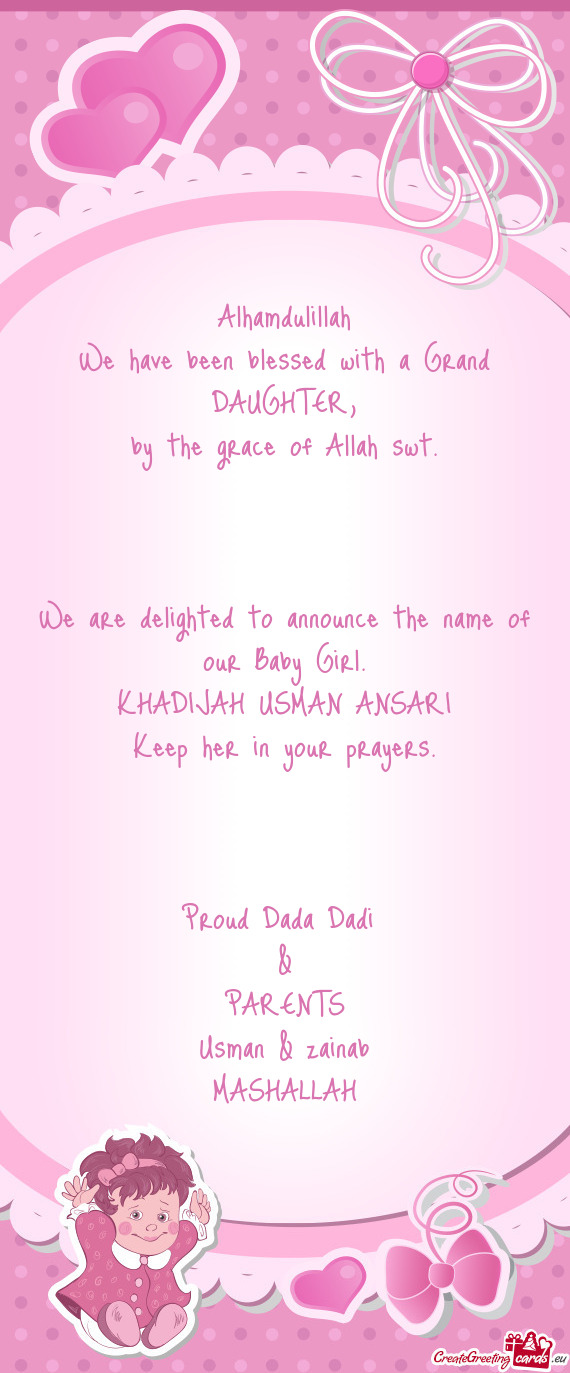 Alhamdulillah
We have been blessed with a Grand
DAUGHTER,
by the grace of Allah swt.
We are delighted to announce the name of
our Baby Girl.
KHADIJAH USMAN ANSARI
Keep her in your prayers.
Proud Dada Dadi
&
PARENTS
Usman & zainab
MASHALLAH
CreateGreeting cards .eu